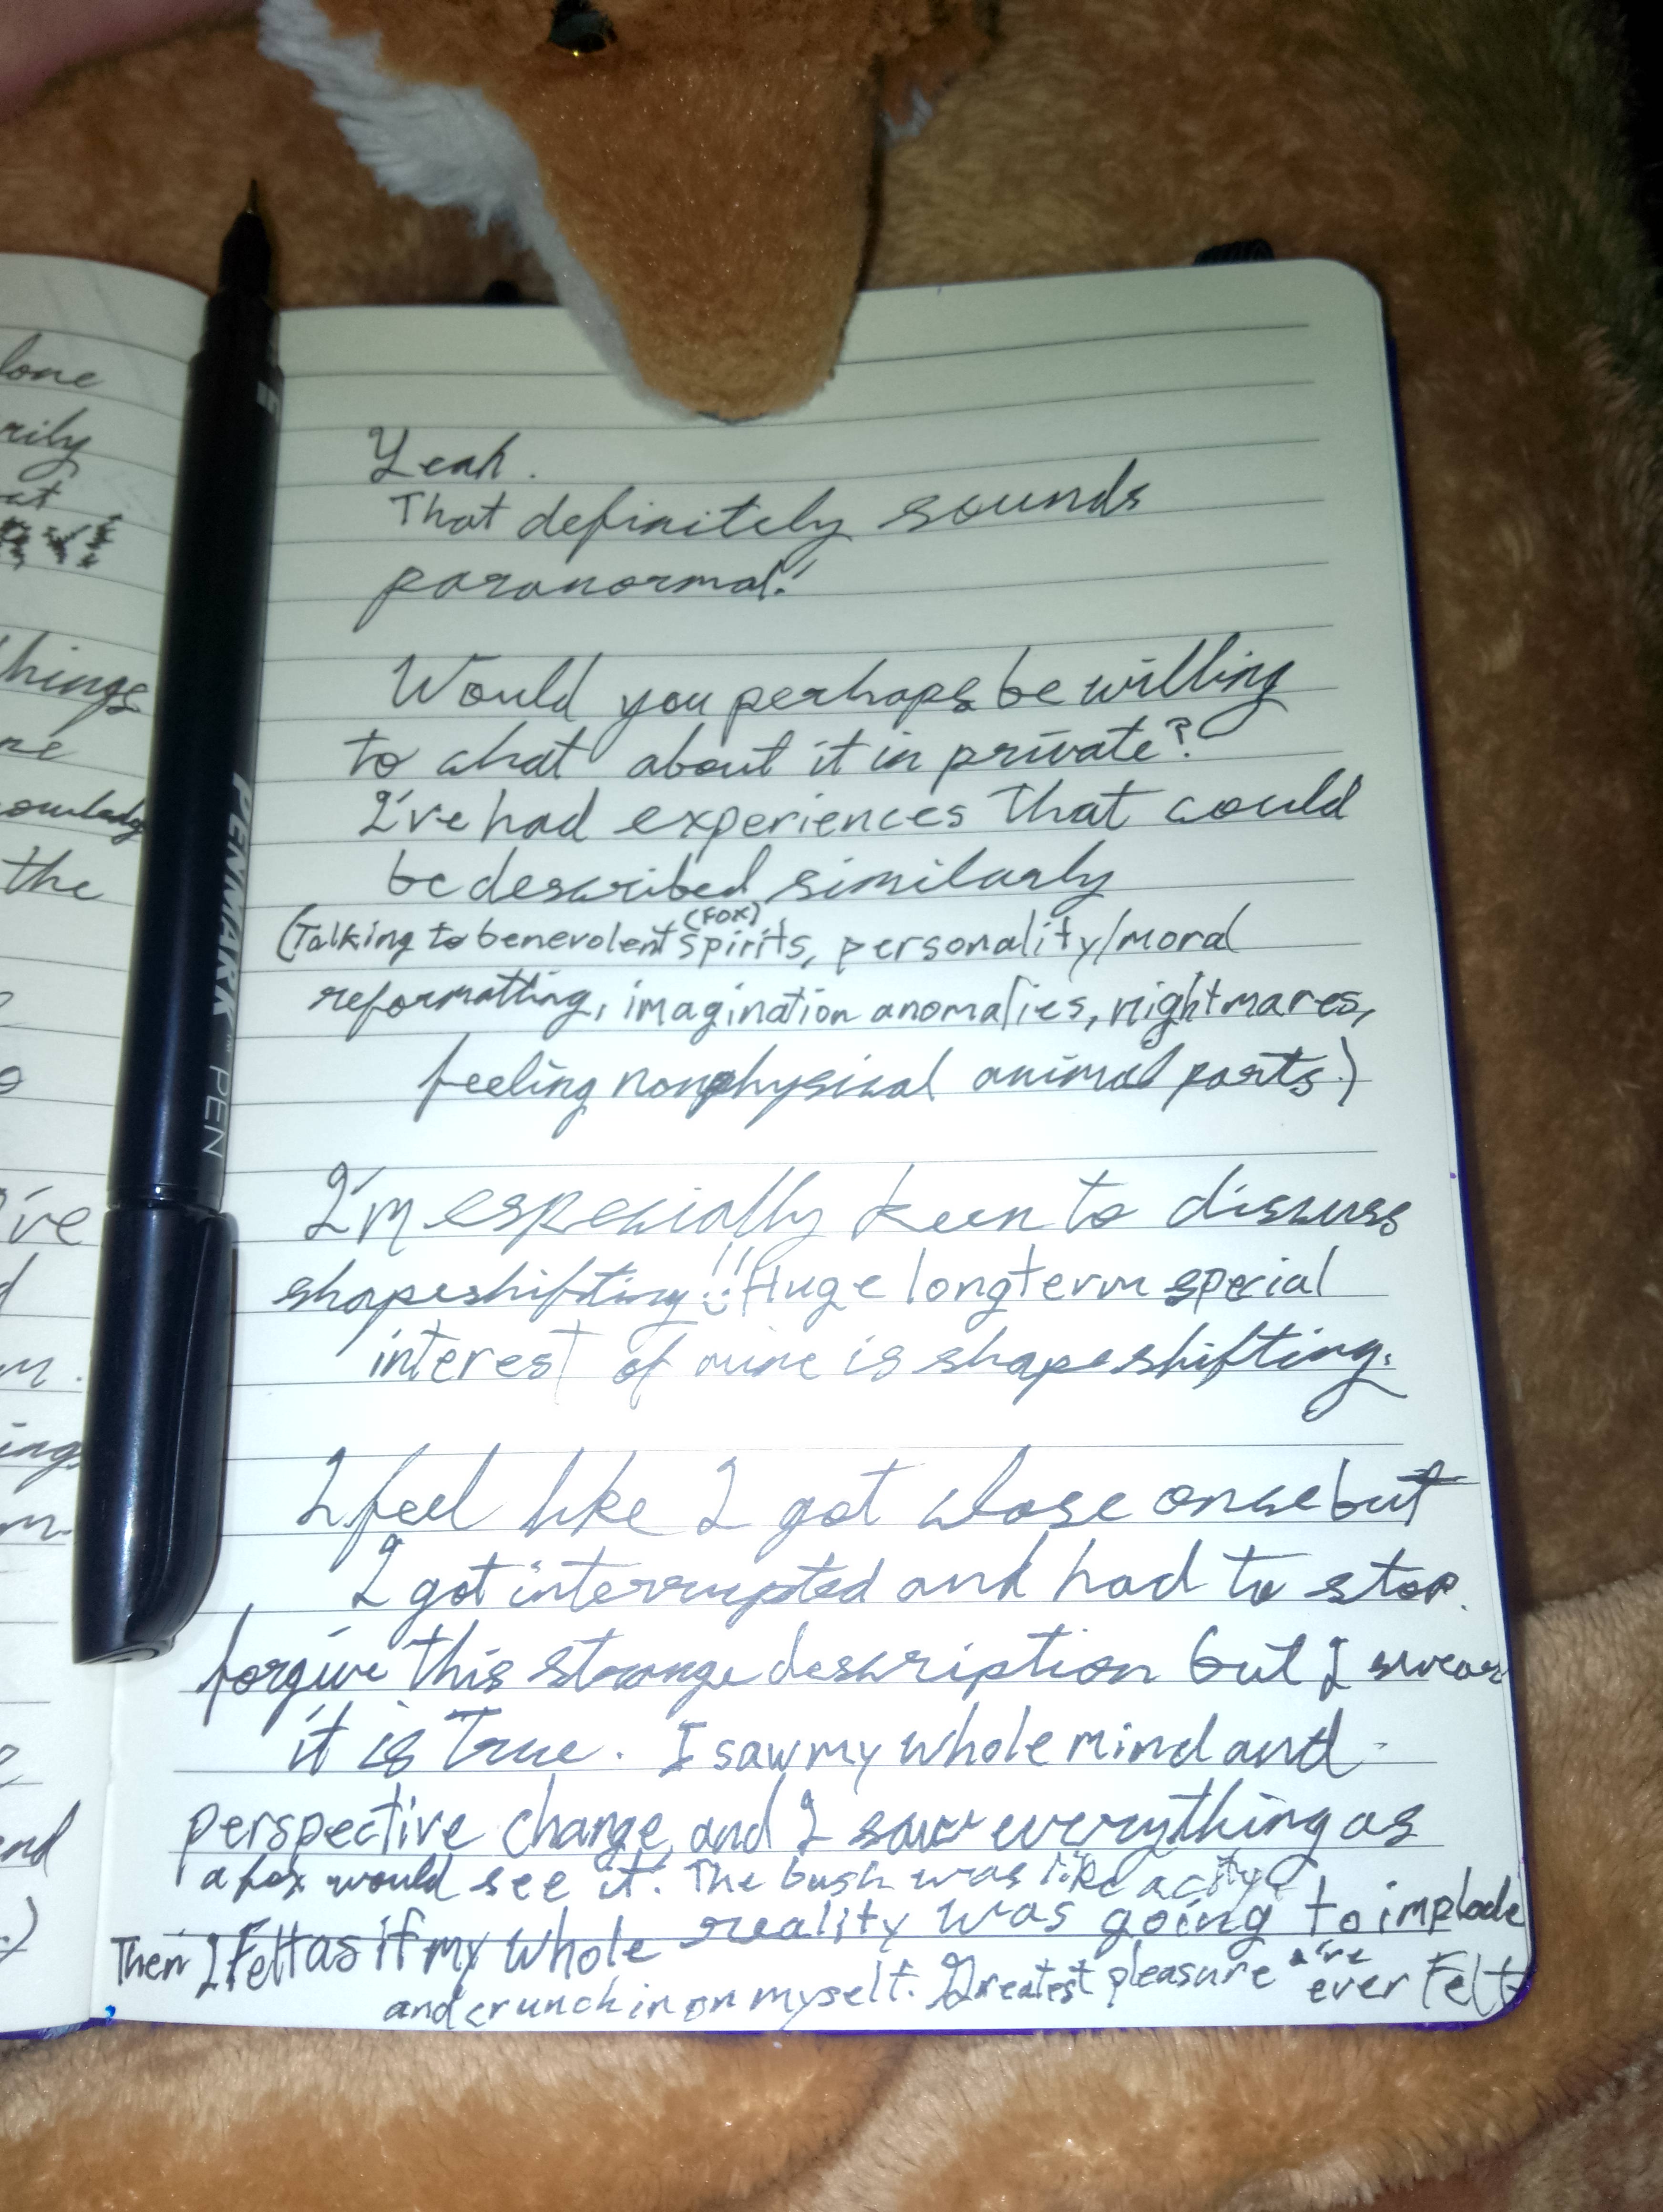 lone
rily
at
things
re
owledg
the
've
d
m.
ings
m.
end
PENMARK™ PEN
Yeah.
That definitely sounds
paranormal!
Would you perhaps be willing
to chat about it in private?
I've had experiences that could
be described similarly
(Talking to benevolent (FOX) spirits, personality/moral
reformatting, imagination anomalies, nightmares,
feeling nonphysical animal parts.)
I'm especially keen to discuss
shapeshifting!! Huge longterm special
interest of mine is shapeshifting.
I feel like I got close once but
I got interrupted and had to stop.
forgive this strange description but I swear
it is True. I saw my whole mind and
perspective change, and I saw everything as
a fox would see it. The bush was like a city
Then I Felt as if my whole reality was going to implode
and crunch in on myself. Greatest pleasure I've ever Felt